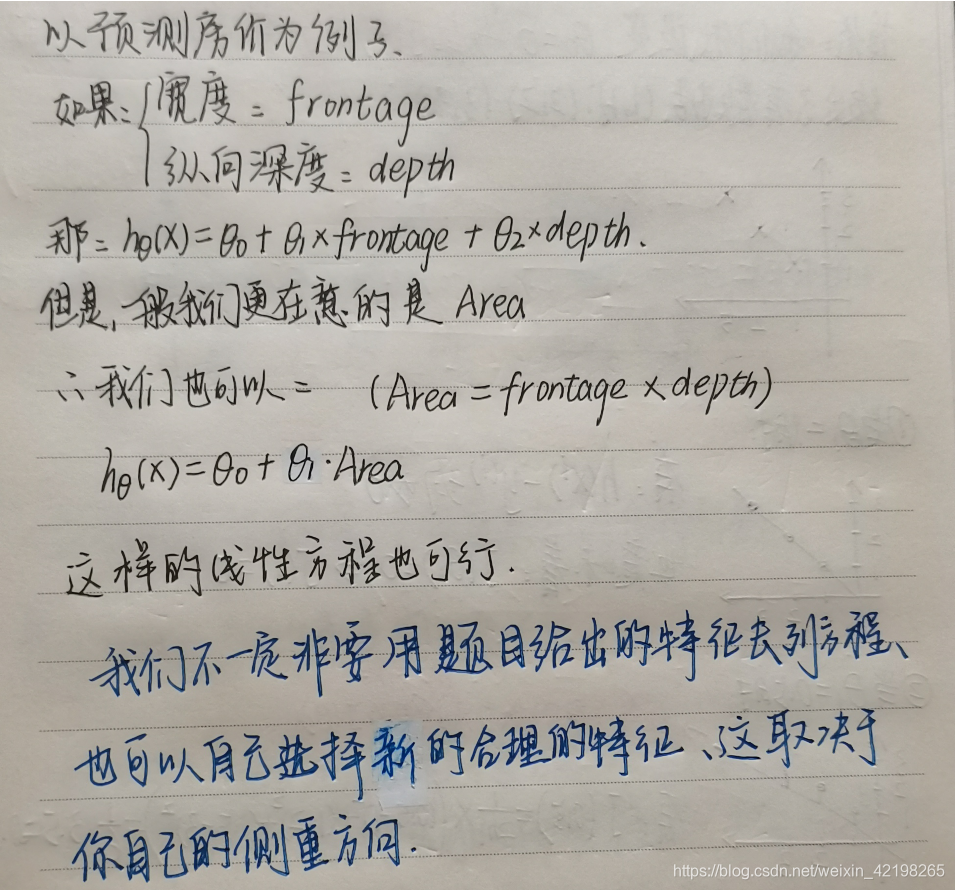 以预测房价为例子、
如果：{宽度 = frontage
纵向深度 = depth
那：hθ(x) = θ0 + θ1×frontage + θ2×depth.
但是，一般我们更在意的是 Area
∴我们也可以： (Area = frontage × depth)
hθ(x) = θ0 + θ1·Area
这样的线性方程也可行.
我们不一定非要用题目给出的特征去列方程、
也可以自己选择新的合理的特征、这取决于
你自己的侧重方向.
https://blog.csdn.net/weixin_42198265